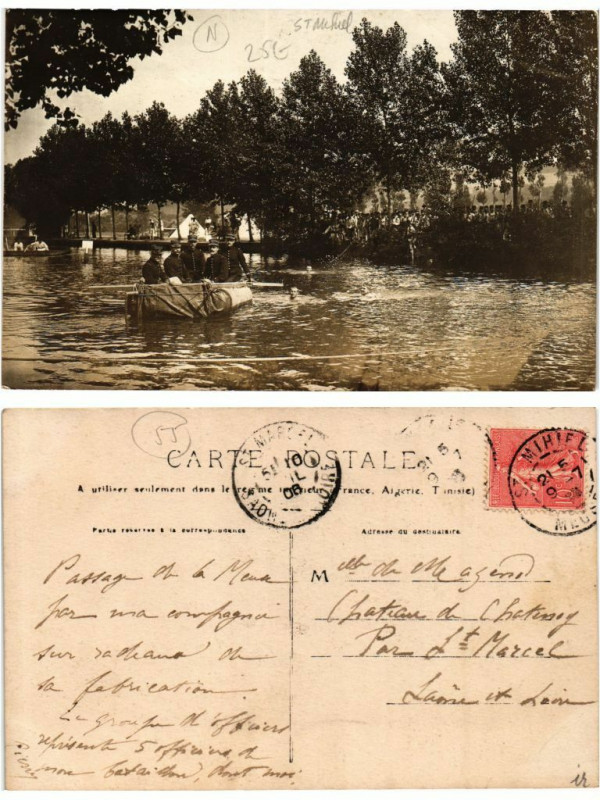 N
St Mihiel
25€
55
CARTE POSTALE
A utiliser seulement dans le régime intérieur (France, Algérie, Tunisie)
Partie réservée à la correspondance
Adresse du destinataire
ST MARCEL
10
06
LOIRE
ST MIHIEL
MEUSE
10
Passage de la Meuse
par ma compagnie
sur radeaux de
sa fabrication.
Le groupe d'officiers
représente 5 officiers de
mon bataillon, dont moi
Melle de
Chateau de
Par St Marcel
Saône et Loire